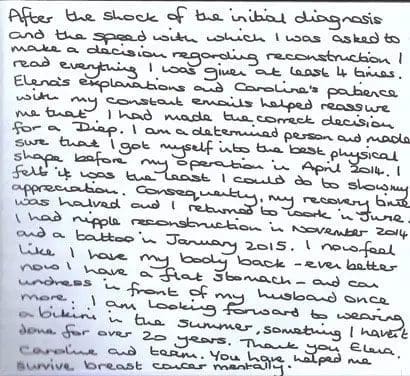 After the shock of the initial diagnosis
and the speed with which I was asked to
make a decision regarding reconstruction I
read everything I was given at least 4 times.
Elena's explanations and Caroline's patience
with my constant emails helped reassure
me that I had made the correct decision
for a Diep. I am a determined person and made
sure that I got myself into the best physical
shape before my operation in April 2014. I
felt it was the least I could do to show my
appreciation. Consequently, my recovery time
was halved and I returned to work in June.
I had nipple reconstruction in November 2014
and a tattoo in January 2015. I now feel
like I have my body back - even better
now I have a flat stomach - and can
undress in front of my husband once
more. I am looking forward to wearing
a bikini in the summer, something I haven't
done for over 20 years. Thank you Elena,
Caroline and team. You have helped me
survive breast cancer mentally.